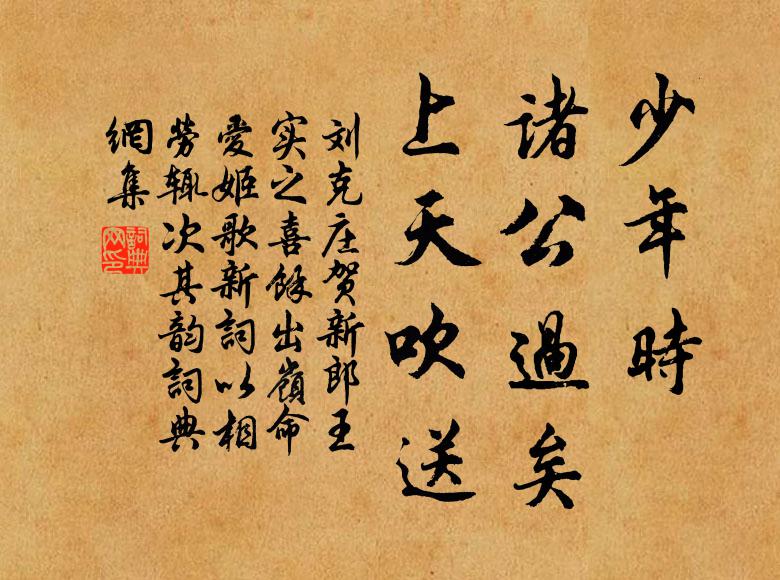 少年時
諸公過矣
上天吹送
刘克庄贺新郎王
实之喜餘出嶺命
愛姬歌新詞以相
勞辄次其韵詞典
網集
詞典網印